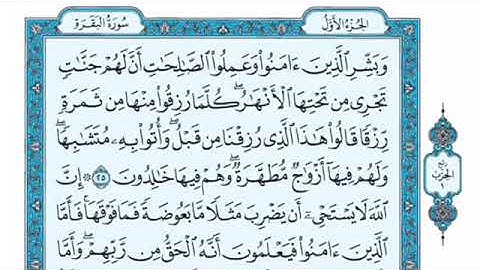 الجزء الأول
سورة البقرة
وَبَشِّرِ الَّذِينَ ءَامَنُوا وَعَمِلُوا الصَّالِحَاتِ أَنَّ لَهُمْ جَنَّاتٍ
تَجْرِي مِن تَحْتِهَا الْأَنْهَارُ ۖ كُلَّمَا رُزِقُوا مِنْهَا مِن ثَمَرَةٍ
رِّزْقًا قَالُوا هَٰذَا الَّذِي رُزِقْنَا مِن قَبْلُ ۖ وَأُتُوا بِهِ مُتَشَابِهًا ۖ
وَلَهُمْ فِيهَا أَزْوَاجٌ مُّطَهَّرَةٌ ۖ وَهُمْ فِيهَا خَالِدُونَ ٢٥ ۞ إِنَّ
اللَّهَ لَا يَسْتَحْيِ أَن يَضْرِبَ مَثَلًا مَّا بَعُوضَةً فَمَا فَوْقَهَا ۚ فَأَمَّا
الَّذِينَ ءَامَنُوا فَيَعْلَمُونَ أَنَّهُ الْحَقُّ مِن رَّبِّهِمْ ۖ وَأَمَّا
ربع
الحزب